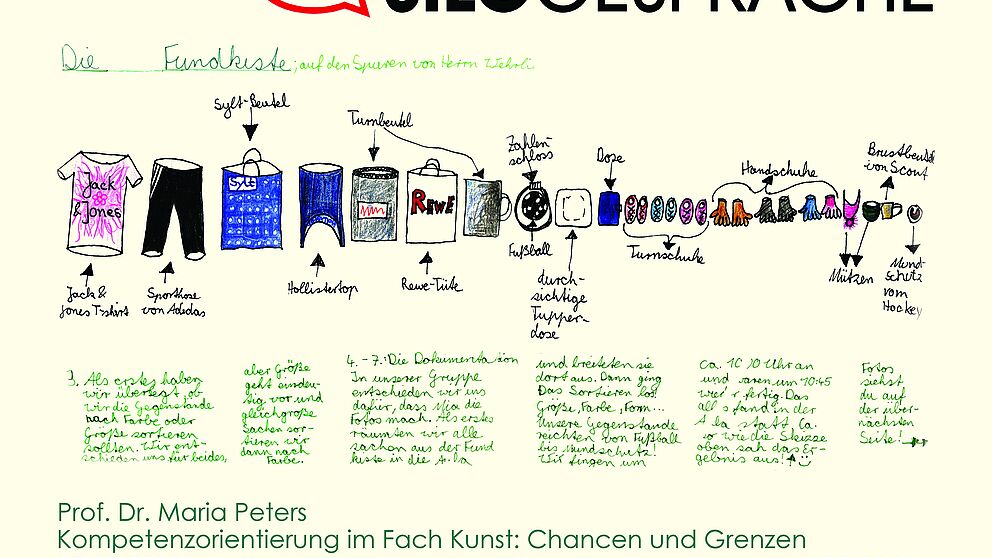 SILOGESPRÄCHE
Die Fundkiste; auf den Spuren von Herrn Wehrli
Sylt-Beutel
Turnbeutel
Zahlen-
schloss
Dose
Handschuhe
Brustbeutel
von Scout
Jack
& Jones
Sylt
REWE
Jack &
Jones T-shirt
Sporthose
von Adidas
Hollistertop
Rewe-Tüte
Fußball
durch-
sichtige
Tupper-
dose
Turnschuhe
Mützen
Mund-
schutz
vom
Hockey
3. Als erstes haben
wir überlegt, ob
wir die Gegenstände
nach Farbe oder
Größe sortieren
sollten. Wir ent-
schieden uns für beides,
aber Größe
geht eindeu-
tig vor und
gleichgroße
Sachen sor-
tieren wir
dann nach
Farbe.
4. - 7.: Die Dokumentation
In unserer Gruppe
entschieden wir uns
dafür, dass Mia die
Fotos mach. Als erstes
räumten wir alle
sachen aus der Fund
kiste in die Aula
und breiteten sie
dort aus. Dann ging
Das Sortieren los!
Größe, Farbe, Form...
Unsere Gegenstände
reichten von Fußball
bis mundschutz!
Wir fingen um
ca. 10 10 Uhr an
und waren um 10:45
wieder fertig. Das
alles fand in der
Aula statt. Ca.
so wie die Skizze
oben sah das Er-
gebnis aus!
Fotos
siehst
du auf
der über-
nächsten
Seite!
Prof. Dr. Maria Peters
Kompetenzorientierung im Fach Kunst: Chancen und Grenzen